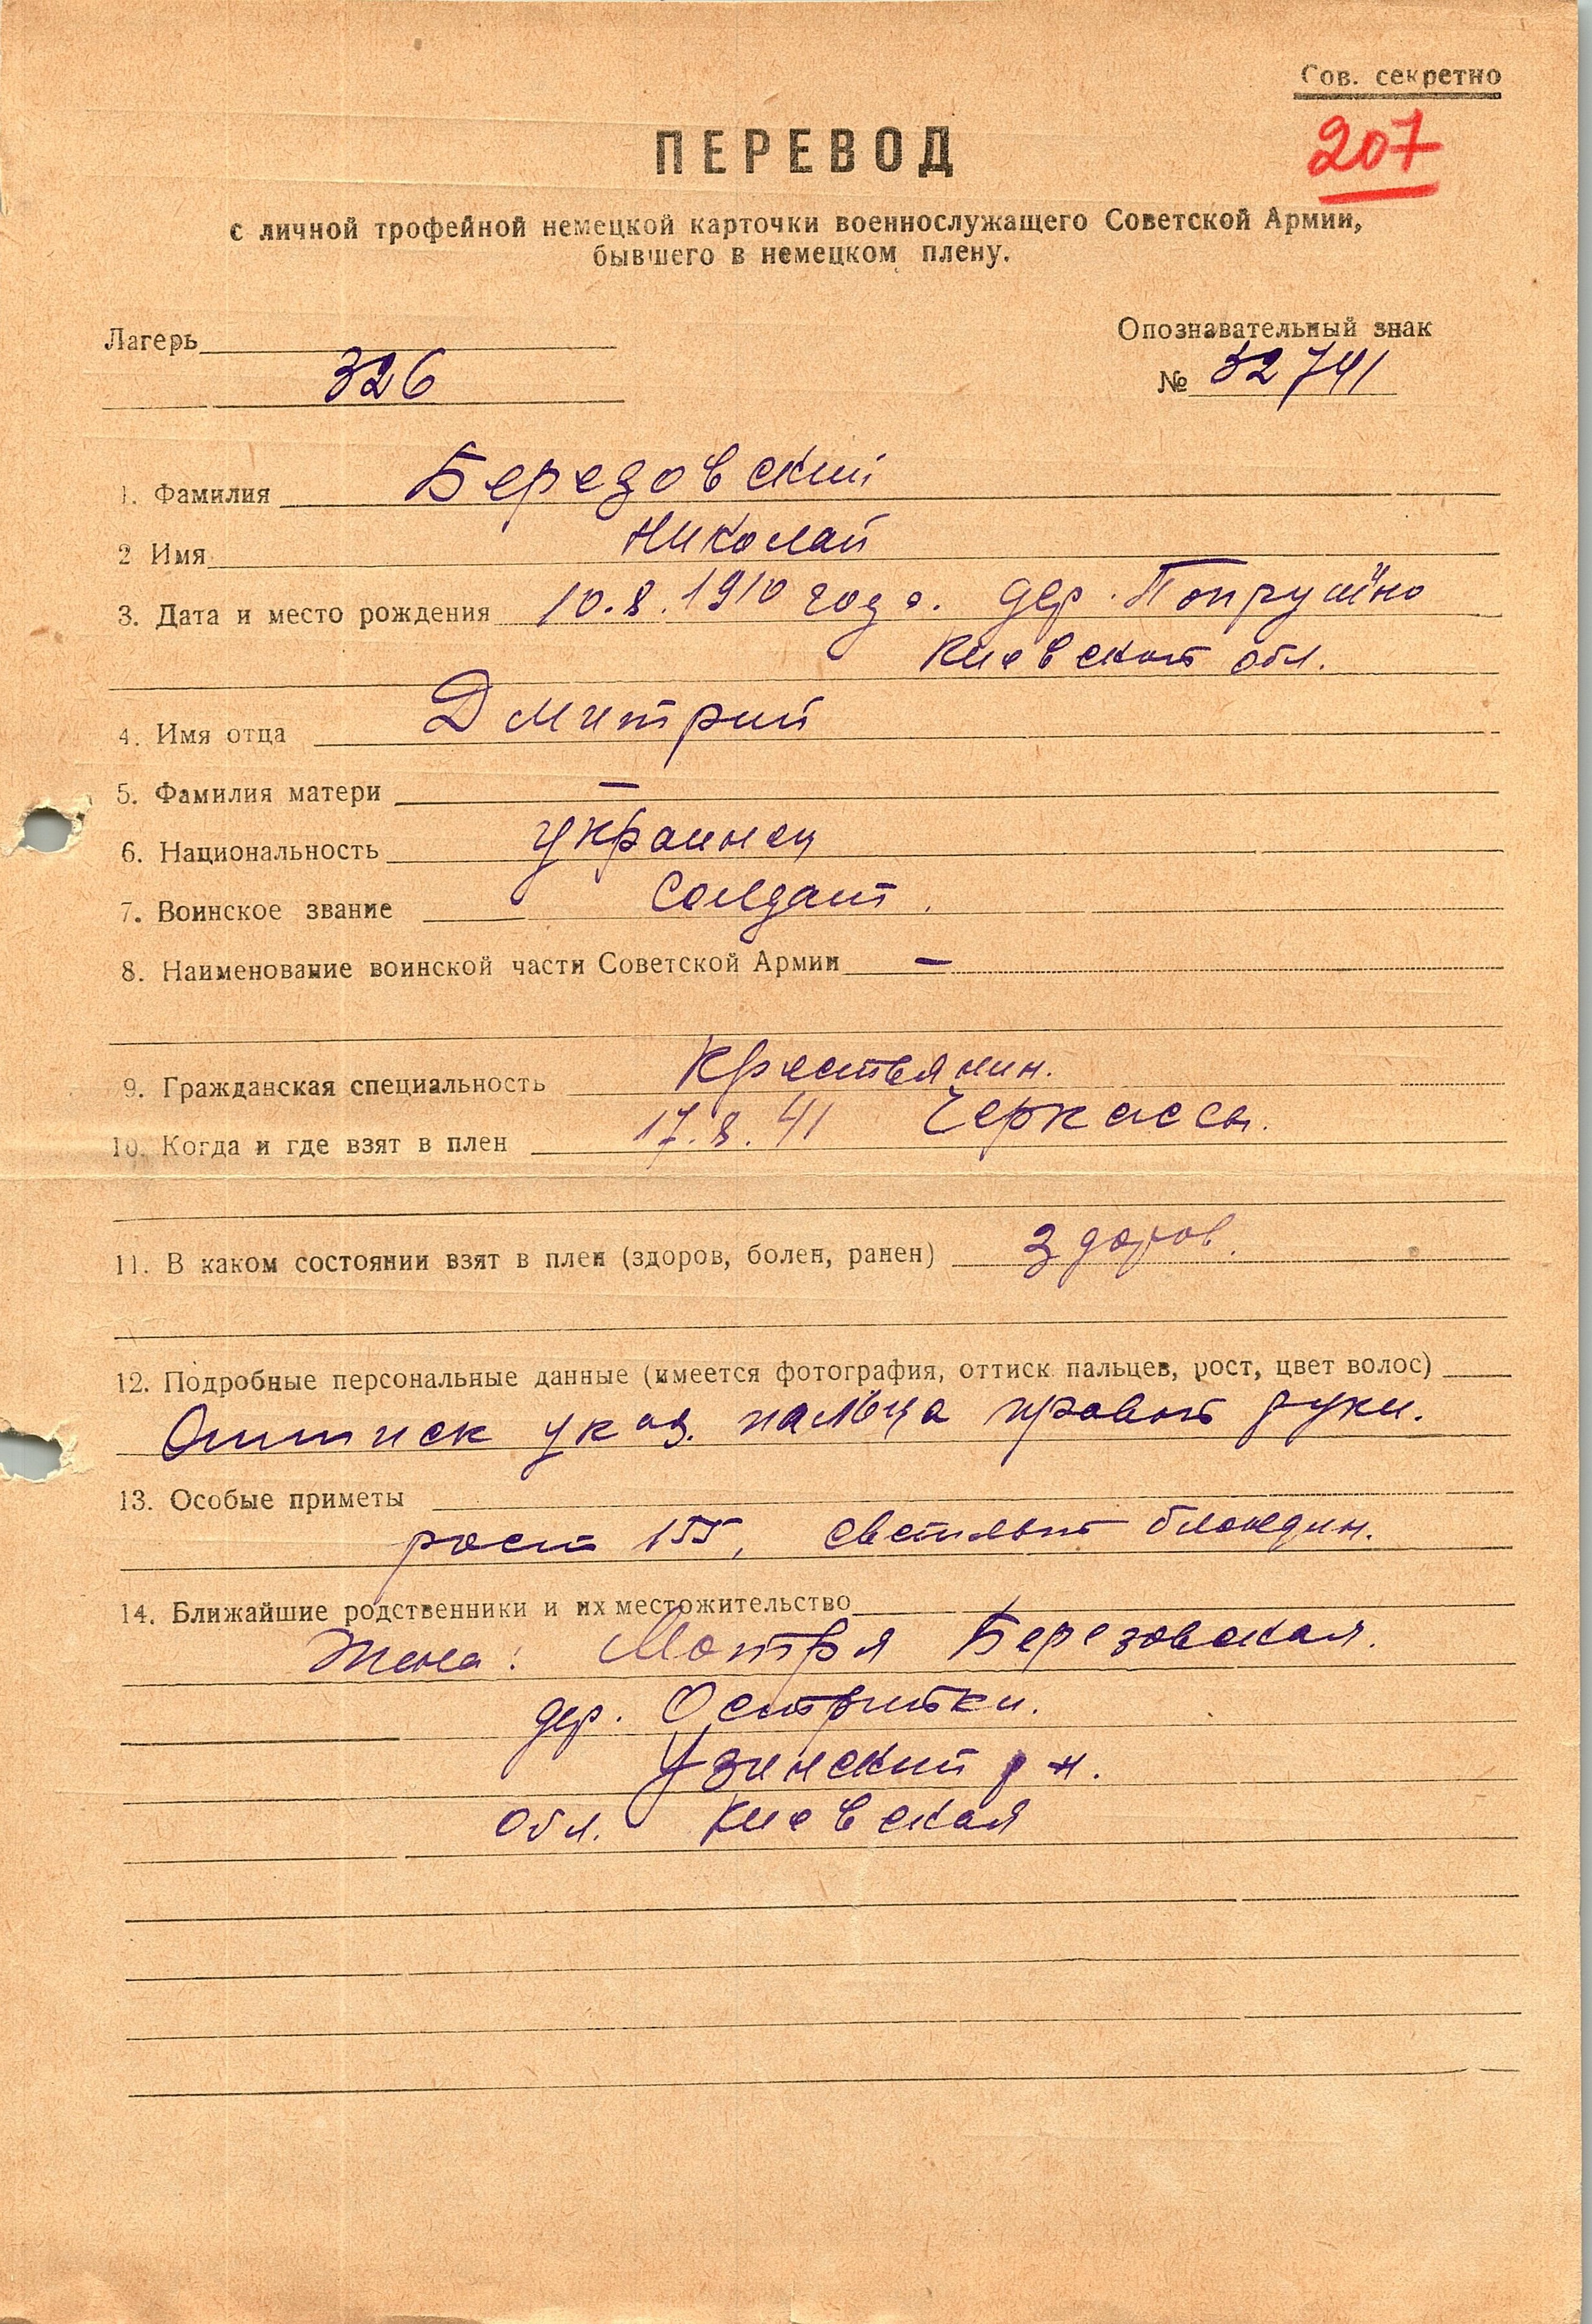 Сов. секретно
207
ПЕРЕВОД
с личной трофейной немецкой карточки военнослужащего Советской Армии,
бывшего в немецком плену.
Лагерь
Опознавательный знак
326
№ 32741
1. Фамилия Березовский
2 Имя Николай
3. Дата и место рождения 10.8.1910 года. дер.
Киевской обл.
4. Имя отца Дмитрий
5. Фамилия матери —
6. Национальность украинец
7. Воинское звание Солдат.
8. Наименование воинской части Советской Армии —
9. Гражданская специальность Крестьянин.
10. Когда и где взят в плен 17.8.41 Черкассы.
11. В каком состоянии взят в плен (здоров, болен, ранен) здоров.
12. Подробные персональные данные (имеется фотография, оттиск пальцев, рост, цвет волос)
Оттиск указ. пальца правой руки.
13. Особые приметы
рост 155, светлый блондин.
14. Ближайшие родственники и их местожительство
Жена: Мотря Березовская.
дер. Острийки.
Узинский р-н.
Обл. Киевская